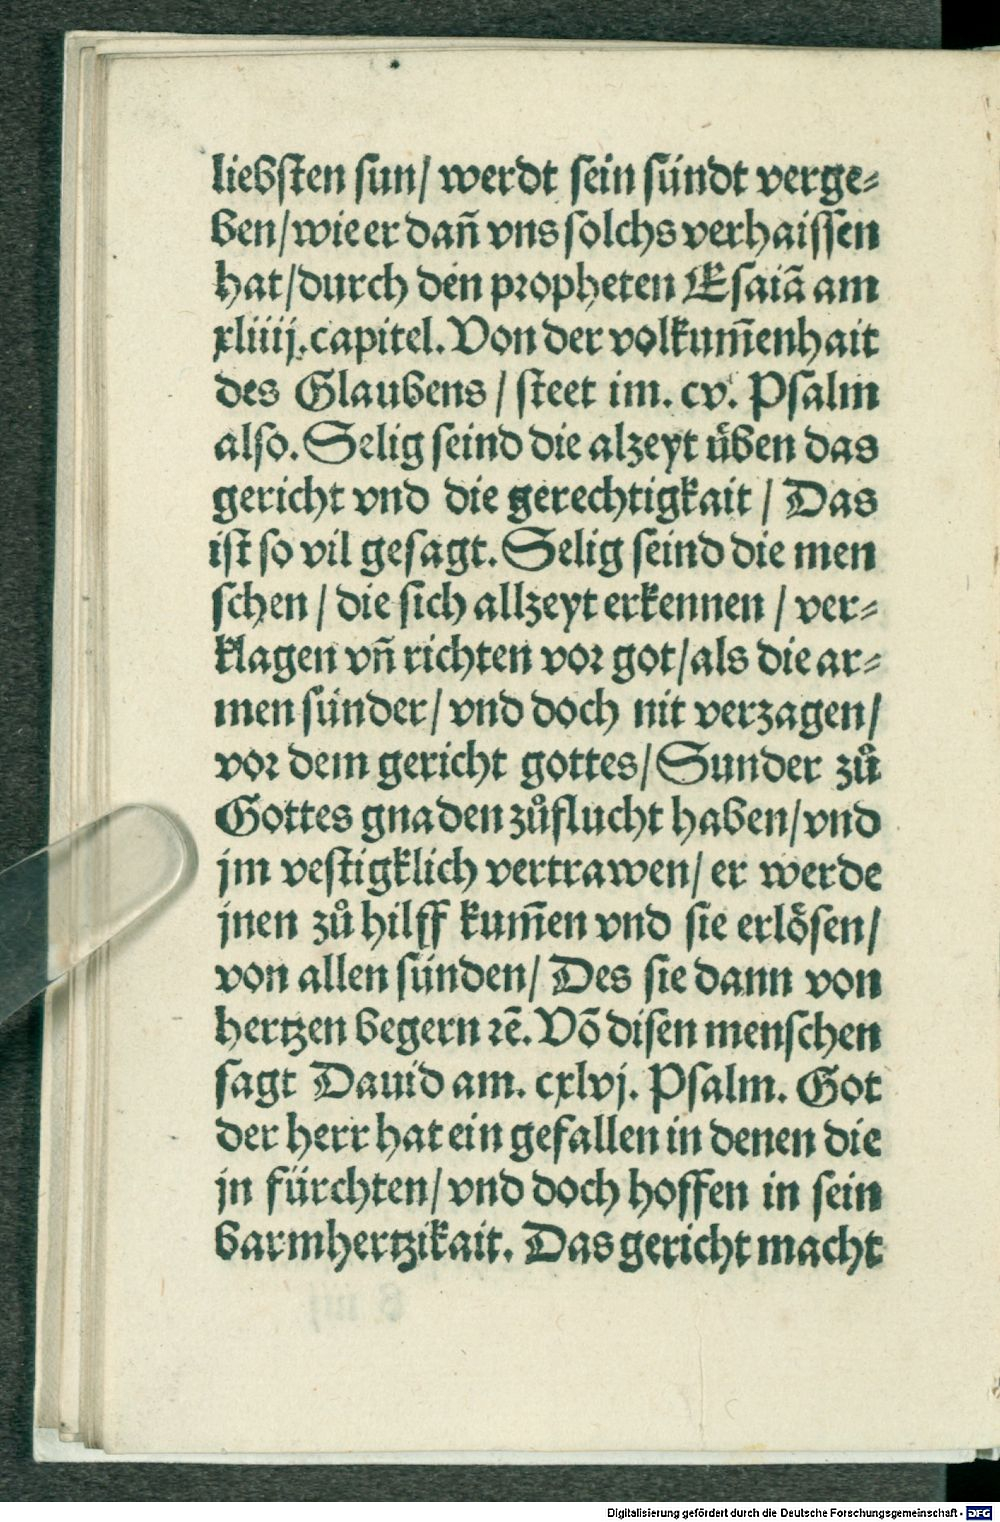 liebsten sun/ werdt sein sündt verge⸗
ben/wie er dañ vns solchs verhaissen
hat/durch den propheten Esaiã am
xliiij. capitel. Von der volkum̃enhait
des Glaubens / steet im. cv. Psalm
also. Selig seind die alzeyt uͤben das
gericht vnd die gerechtigkait / Das
ist so vil gesagt. Selig seind die men
schen / die sich allzeyt erkennen / ver⸗
klagen vñ richten vor got/als die ar⸗
men sünder/ vnd doch nit verzagen/
vor dem gericht gottes/Sunder zů
Gottes gnaden zůflucht haben/vnd
jm vestigklich vertrawen/ er werde
jnen zů hilff kum̃en vnd sie erloͤsen/
von allen sünden/ Des sie dann von
hertzen begern ꝛẽ. Võ disen menschen
sagt Dauid am. cxlvj. Psalm. Got
der herr hat ein gefallen in denen die
jn fürchten/ vnd doch hoffen in sein
barmhertzikait. Das gericht macht
Digitalisierung gefördert durch die Deutsche Forschungsgemeinschaft - DFG